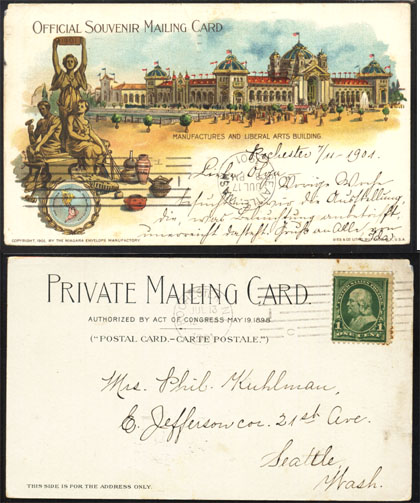 OFFICIAL SOUVENIR MAILING CARD
MANUFACTURES AND LIBERAL ARTS BUILDING
Rochester 7/11 - 1901.
Vorige Woche
wir die Ausstellung,
die, was
unerreicht dasteht. Gruß an Alle
COPYRIGHT 1901, BY THE NIAGARA ENVELOPE MANUFACTORY.
U.S.A.
PRIVATE MAILING CARD.
AUTHORIZED BY ACT OF CONGRESS MAY 19, 1898
("POSTAL CARD.-CARTE POSTALE.")
1 1
ONE CENT
Mrs. Phil. Kuhlman,
E. Jefferson cor. 21st Ave.
Seattle,
Wash.
THIS SIDE IS FOR THE ADDRESS ONLY.